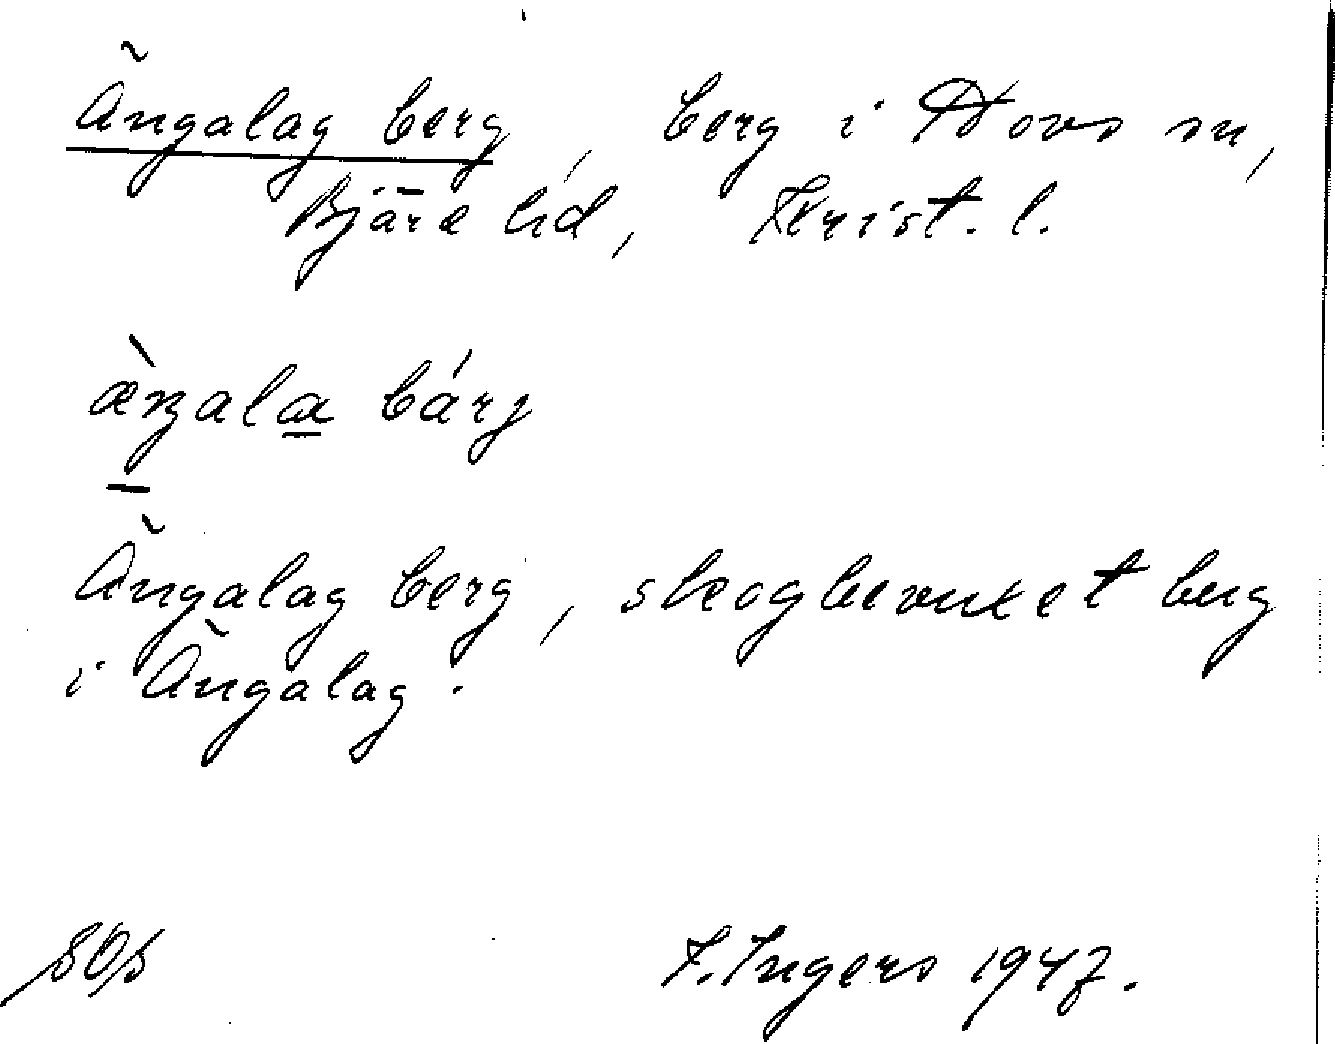 Ängalag berg, berg i Hovs sn,
Bjäre hd, Krist. l.
æ̀ŋala bárj
Ängalag berg, skogbevuxet berg
i Ängalag.
I. Ingers 1947.